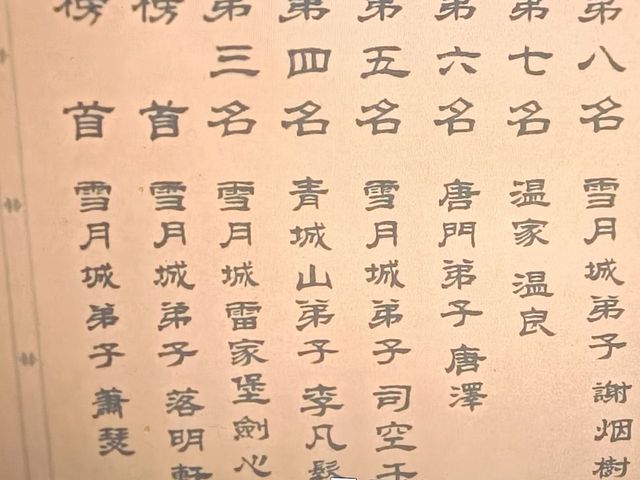 榜首 雪月城弟子 蕭瑟
榜首 雪月城弟子 落明軒
第三名 雪月城雷家堡劍心
第四名 青城山弟子 李凡
第五名 雪月城弟子 司空千
第六名 唐門弟子 唐澤
第七名 温家 温良
第八名 雪月城弟子 謝烟樹